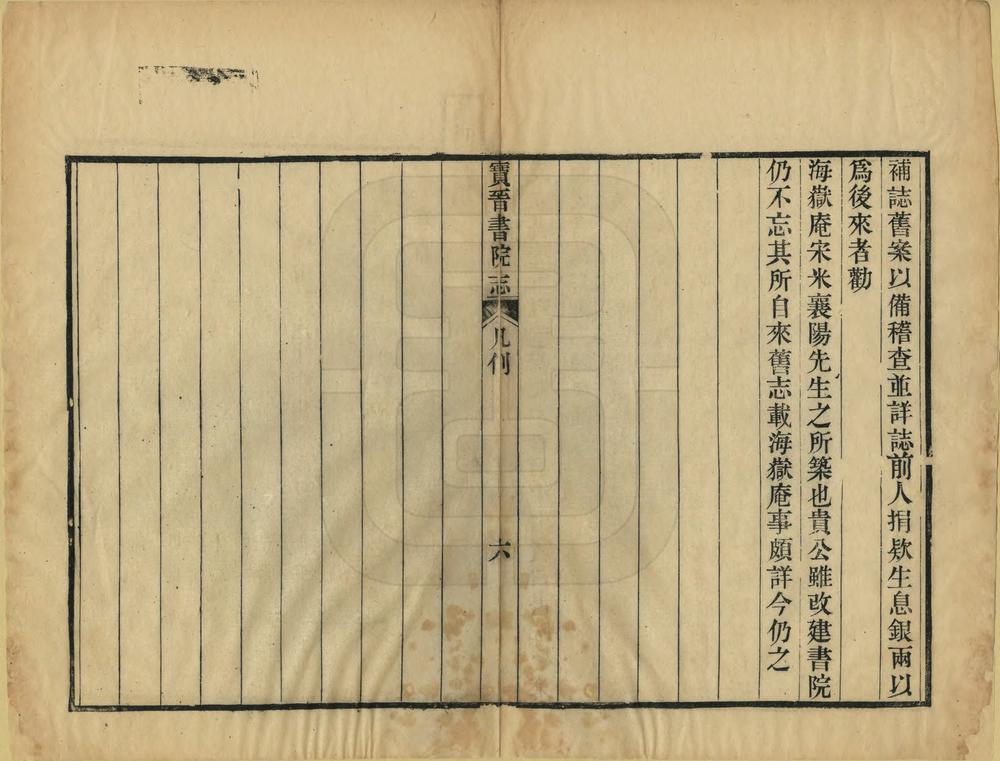 補誌舊案以備稽查並詳誌前人捐欵生息銀兩以
爲後來者勸
海嶽庵宋米襄陽先生之所築也貴公雖改建書院
仍不忘其所自來舊志載海嶽庵事頗詳今仍之
寶晉書院志 凡例 六